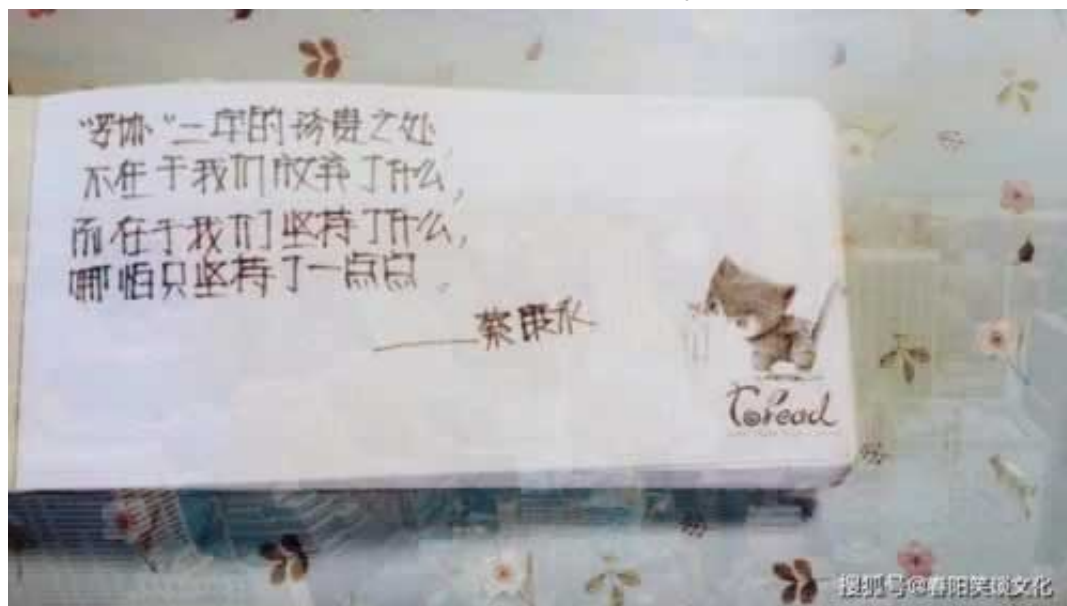 "妥协"二字的珍贵之处
不在于我们放弃了什么，
而在于我们坚持了什么，
哪怕只坚持了一点点。
——蔡康永
Toread
搜狐号@春阳笑谈文化